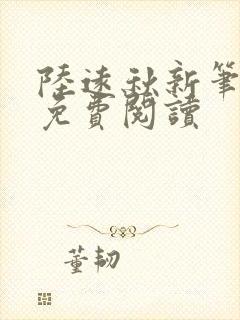 陸遠秋新筆
免費閱讀
董韌